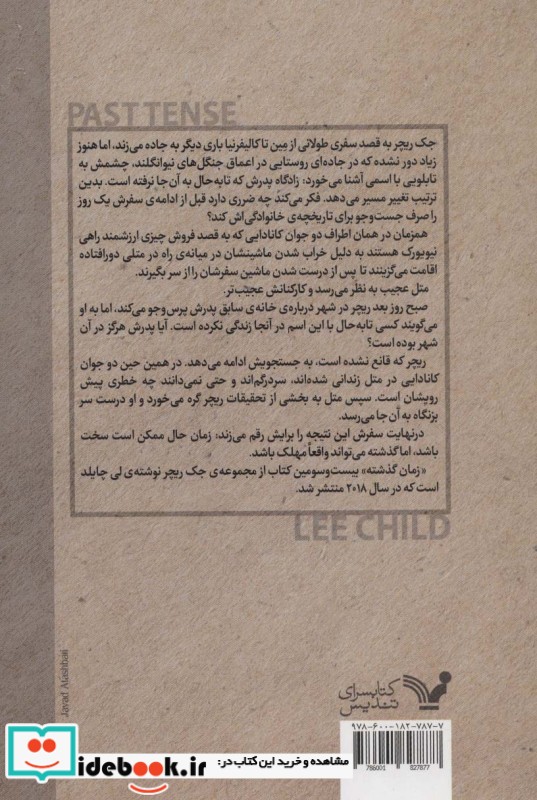 PAST TENSE
جک ریچر به قصد سفری طولانی از مین تا کالیفرنیا باری دیگر به جاده می‌زند، اما هنوز
زیاد دور نشده که در جاده‌ای روستایی در اعماق جنگل‌های نیوانگلند، چشمش به
تابلویی با اسمی آشنا می‌خورد: زادگاه پدرش که تابه‌حال به آن‌جا نرفته است. بدین
ترتیب تغییر مسیر می‌دهد. فکر می‌کند چه ضرری دارد قبل از ادامه‌ی سفرش یک روز
را صرف جست‌وجو برای تاریخچه‌ی خانوادگی‌اش کند؟
همزمان در همان اطراف دو جوان کانادایی که به قصد فروش چیزی ارزشمند راهی
نیویورک هستند به دلیل خراب شدن ماشینشان در میانه‌ی راه در متلی دورافتاده
اقامت می‌گزینند تا پس از درست شدن ماشین سفرشان را از سر بگیرند.
متل عجیب به نظر می‌رسد و کارکنانش عجیب‌تر.
صبح روز بعد ریچر در شهر درباره‌ی خانه‌ی سابق پدرش پرس‌وجو می‌کند، اما به او
می‌گویند کسی تابه‌حال با این اسم در آنجا زندگی نکرده است. آیا پدرش هرگز در آن
شهر بوده است؟
ریچر که قانع نشده است، به جستجویش ادامه می‌دهد. در همین حین دو جوان
کانادایی در متل زندانی شده‌اند، سردرگم‌اند و حتی نمی‌دانند چه خطری پیش
رویشان است. سپس متل به بخشی از تحقیقات ریچر گره می‌خورد و او درست سر
بزنگاه به آن‌جا می‌رسد.
درنهایت سفرش این نتیجه را برایش رقم می‌زند: زمان حال ممکن است سخت
باشد، اما گذشته می‌تواند واقعاً مهلک باشد.
«زمان گذشته» بیست‌وسومین کتاب از مجموعه‌ی جک ریچر نوشته‌ی لی چایلد
است که در سال ۲۰۱۸ منتشر شد.
LEE CHILD
Javad Atashbari
کتابسرای
تندیس
۹۷۸-۶۰۰-۱۸۲-۷۸۷-۷
786001 827877
مشاهده و خرید این کتاب در:
idebook.ir